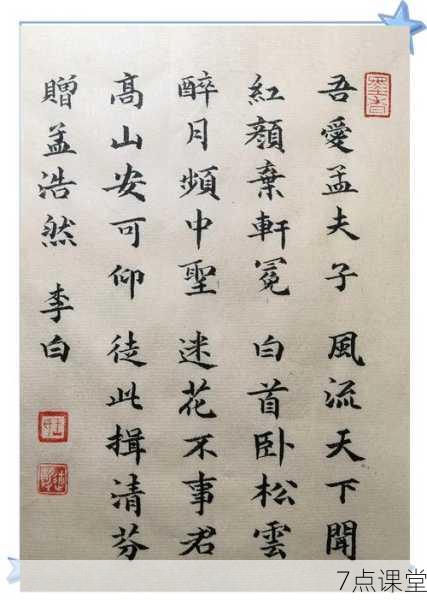 吾愛孟夫子 風流天下聞
紅顔棄軒冕 白首卧松雲
醉月頻中聖 迷花不事君
髙山安可仰 徒此揖清芬
贈孟浩然 李白
7点课堂